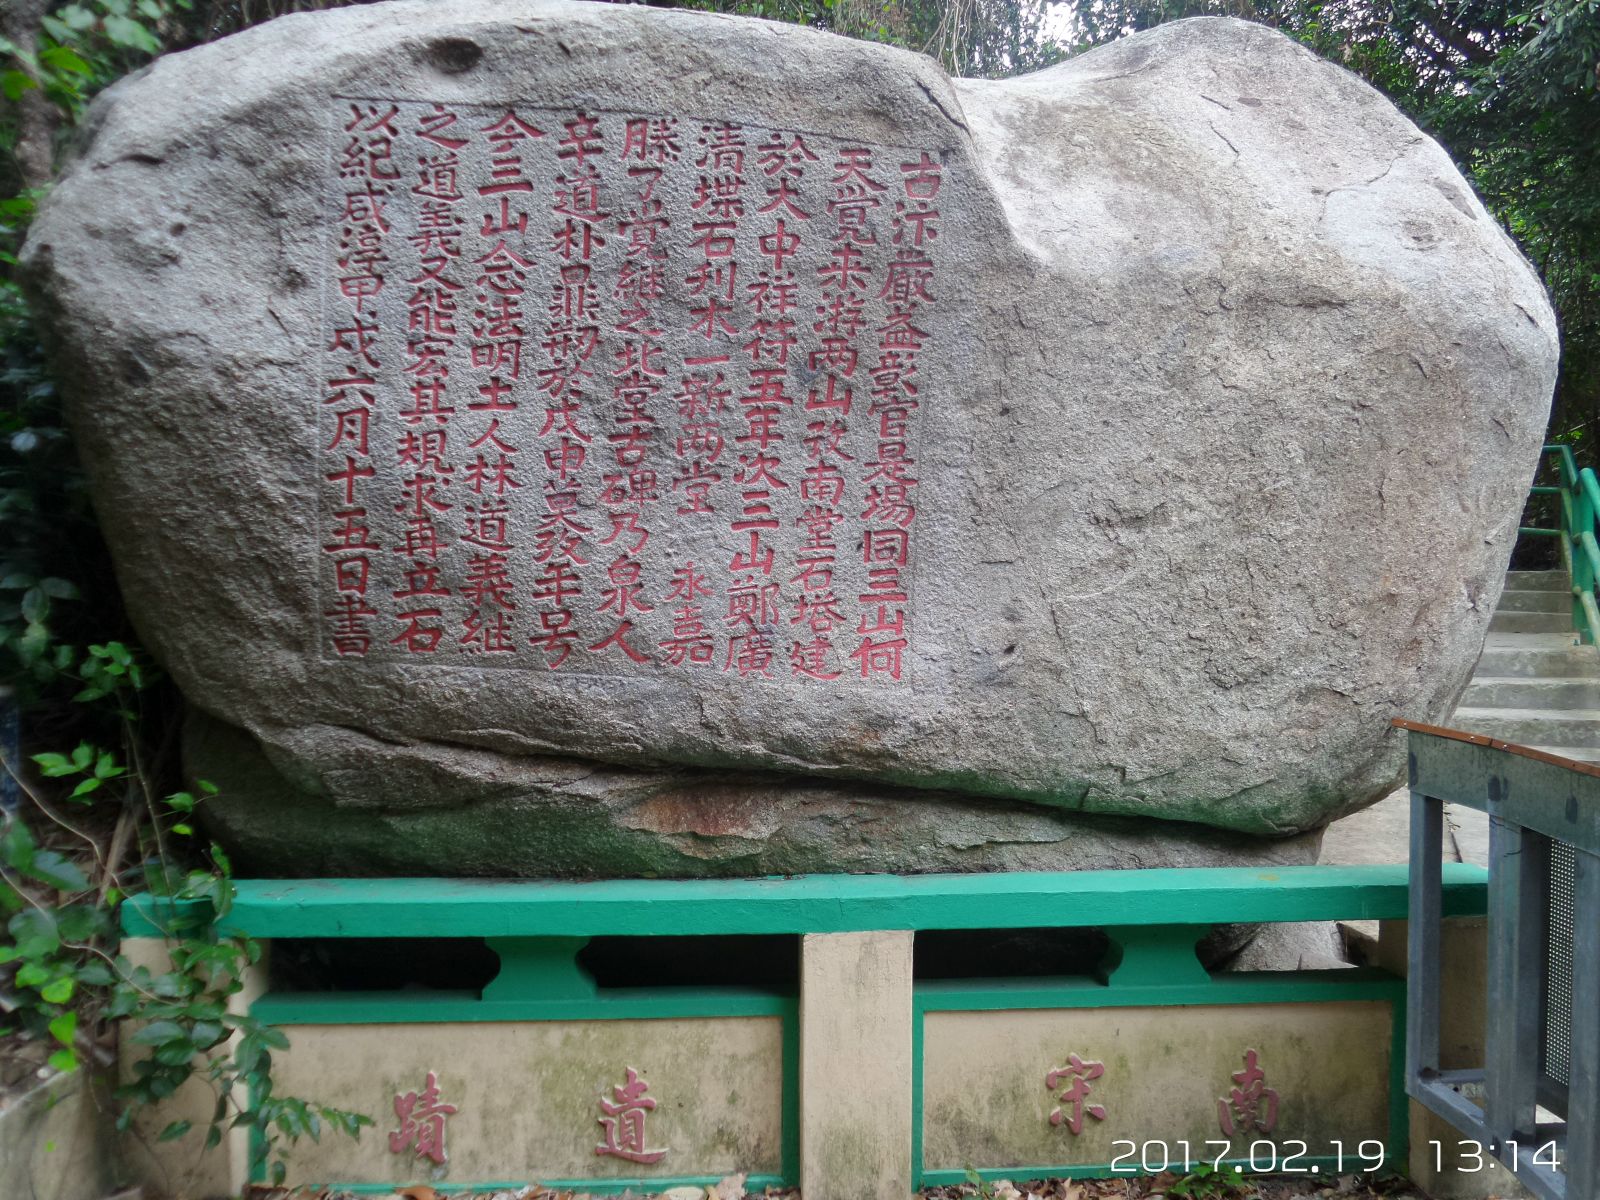 古汴嚴益彰官是場同三山何
天覺来游两山攷南堂石塔建
於大中祥符五年次三山鄭廣
清堞石刋木一新两堂永嘉
滕了覺繼之北堂古碑乃泉人
辛道朴鼎刱於戊申莫攷年号
今三山念法明土人林道義継
之道義又能宏其規求再立石
以紀咸淳甲戌六月十五日書
南宋遺蹟
2017.02.19 13:14